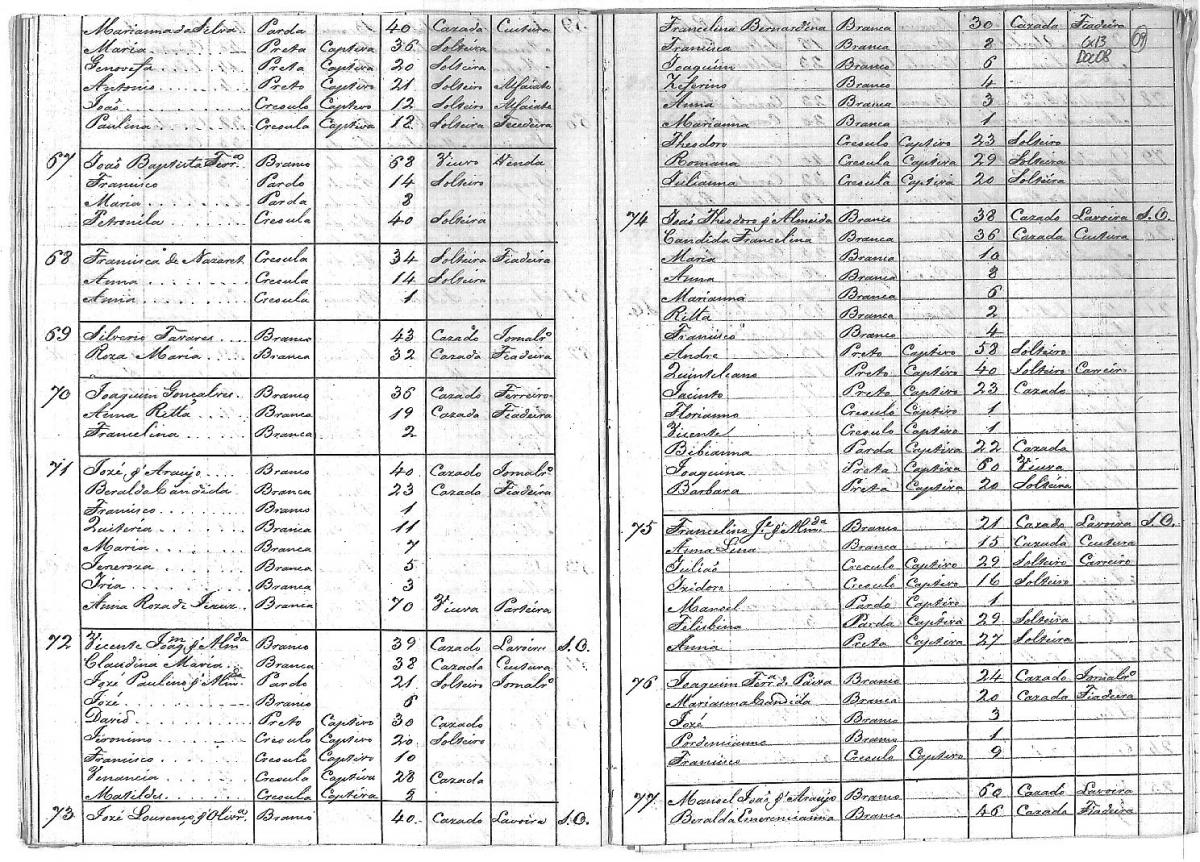 Marianna da Silva Parda 40 Cazada Custura
Maria Preta Captiva 36 Solteira
Genovefa Preta Captiva 20 Solteira
Antonio Preto Captivo 21 Solteiro Alfaiate
João Creoulo Captivo 12 Solteiro Alfaiate
Paulina Creoula Captiva 12 Solteira Tecedeira
67 João Baptista Ferrª Branco 68 Viuvo Venda
Francisco Pardo 14 Solteiro
Maria Parda 8
Petronila Creoula 40 Solteira
68 Francisca de Nazaret Creoula 34 Solteira Fiadeira
Anna Creoula 14 Solteira
Anna Creoula 1
69 Silverio Tavares Branco 43 Cazado Jornalrº
Roza Maria Branca 32 Cazada Fiadeira
70 Joaquim Gonçalves Branco 36 Cazado Ferreiro
Anna Ritta Branca 19 Cazada Fiadeira
Francelina Branca 2
71 Jozé d'Araujo Branco 40 Cazado Jornalrº
Beralda Candida Branca 23 Cazada Fiadeira
Francisco Branco 1
Quiteria Branca 11
Maria Branca 7
Jeneroza Branca 5
Iria Branca 3
Anna Roza de Jezus Branca 70 Viuva Parteira
72 Vicente Joaqm d'Almda Branco 39 Cazado Lavoira S.O.
Claudina Maria Branca 38 Cazada Custura
Jozé Paulino d'Almda Pardo 21 Solteiro Jornalrº
Jozé Branco 6
David Preto Captivo 30 Cazado
Jeronimo Creoulo Captivo 20 Solteiro
Francisco Creoulo Captivo 10
Venancia Creoula Captiva 28 Cazada
Matildes Creoula Captiva 2
73 Jozé Lourenço d'Olivrª Branco 40 Cazado Lavoira S.O.
Francelina Bernardina Branca 30 Cazada Fiadeira
Francisca Branca 8
Cx13
09
Joaquim Branco 6
Doc08
Zeferino Branco 4
Anna Branca 3
Marianna Branca 1
Theodoro Creoulo Captivo 23 Solteiro
Romana Creoula Captiva 29 Solteira
Julianna Creoula Captiva 20 Solteira
74 João Theodoro d'Almeida Branco 38 Cazado Lavoira S.O.
Candida Francelina Branca 36 Cazada Custura
Maria Branca 10
Anna Branca 8
Marianna Branca 6
Ritta Branca 2
Francisco Branco 4
Andre Preto Captivo 58 Solteiro
Quinteleano Preto Captivo 40 Solteiro Carreiro
Jacinto Preto Captivo 23 Cazado
Florianno Creoulo Captivo 1
Vicente Creoulo Captivo 1
Bibianna Parda Captiva 22 Cazada
Joaquina Preta Captiva 60 Viuva
Barbara Preta Captiva 20 Solteira
75 Francelino Je d'Almda Branco 21 Cazado Lavoira S.O.
Anna Lina Branca 15 Cazada Custura
Julião Creoulo Captivo 29 Solteiro Carreiro
Izidoro Creoulo Captivo 16 Solteiro
Manoel Pardo Captivo 1
Felisbina Parda Captiva 29 Solteira
Anna Preta Captiva 27 Solteira
76 Joaquim Ferrª de Paiva Branco 24 Cazado Jornalrº
Marianna Candida Branca 20 Cazada Fiadeira
Jozé Branco 3
Branco 1
Francisco Creoulo Captivo 9
77 Manoel João d'Araujo Branco 60 Cazado Lavoira
Beralda Emerencianna Branca 46 Cazada Fiadeira